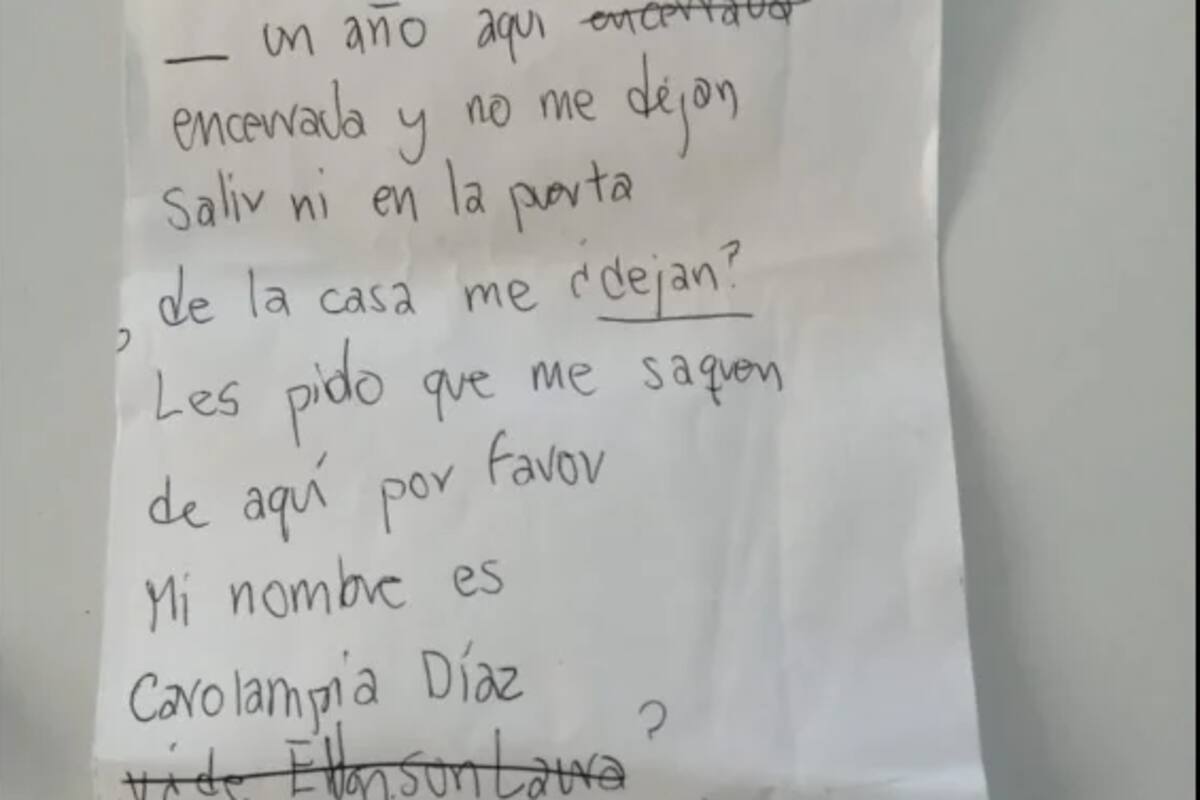 __ un año aqui encerrada
encerrada y no me dejan
Salir ni en la puerta
de la casa me ¿dejan?
Les pido que me saquen
de aquí por favor
Mi nombre es
Carolampia Díaz
?